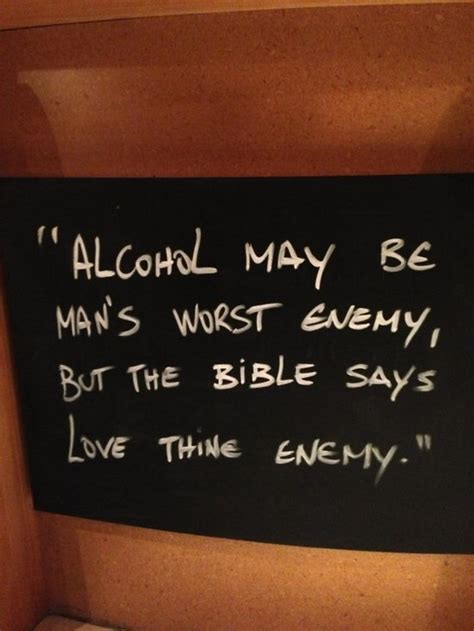 "ALCOHOL MAY BE
MAN'S WORST ENEMY,
BUT THE BIBLE SAYS
LOVE THINE ENEMY."